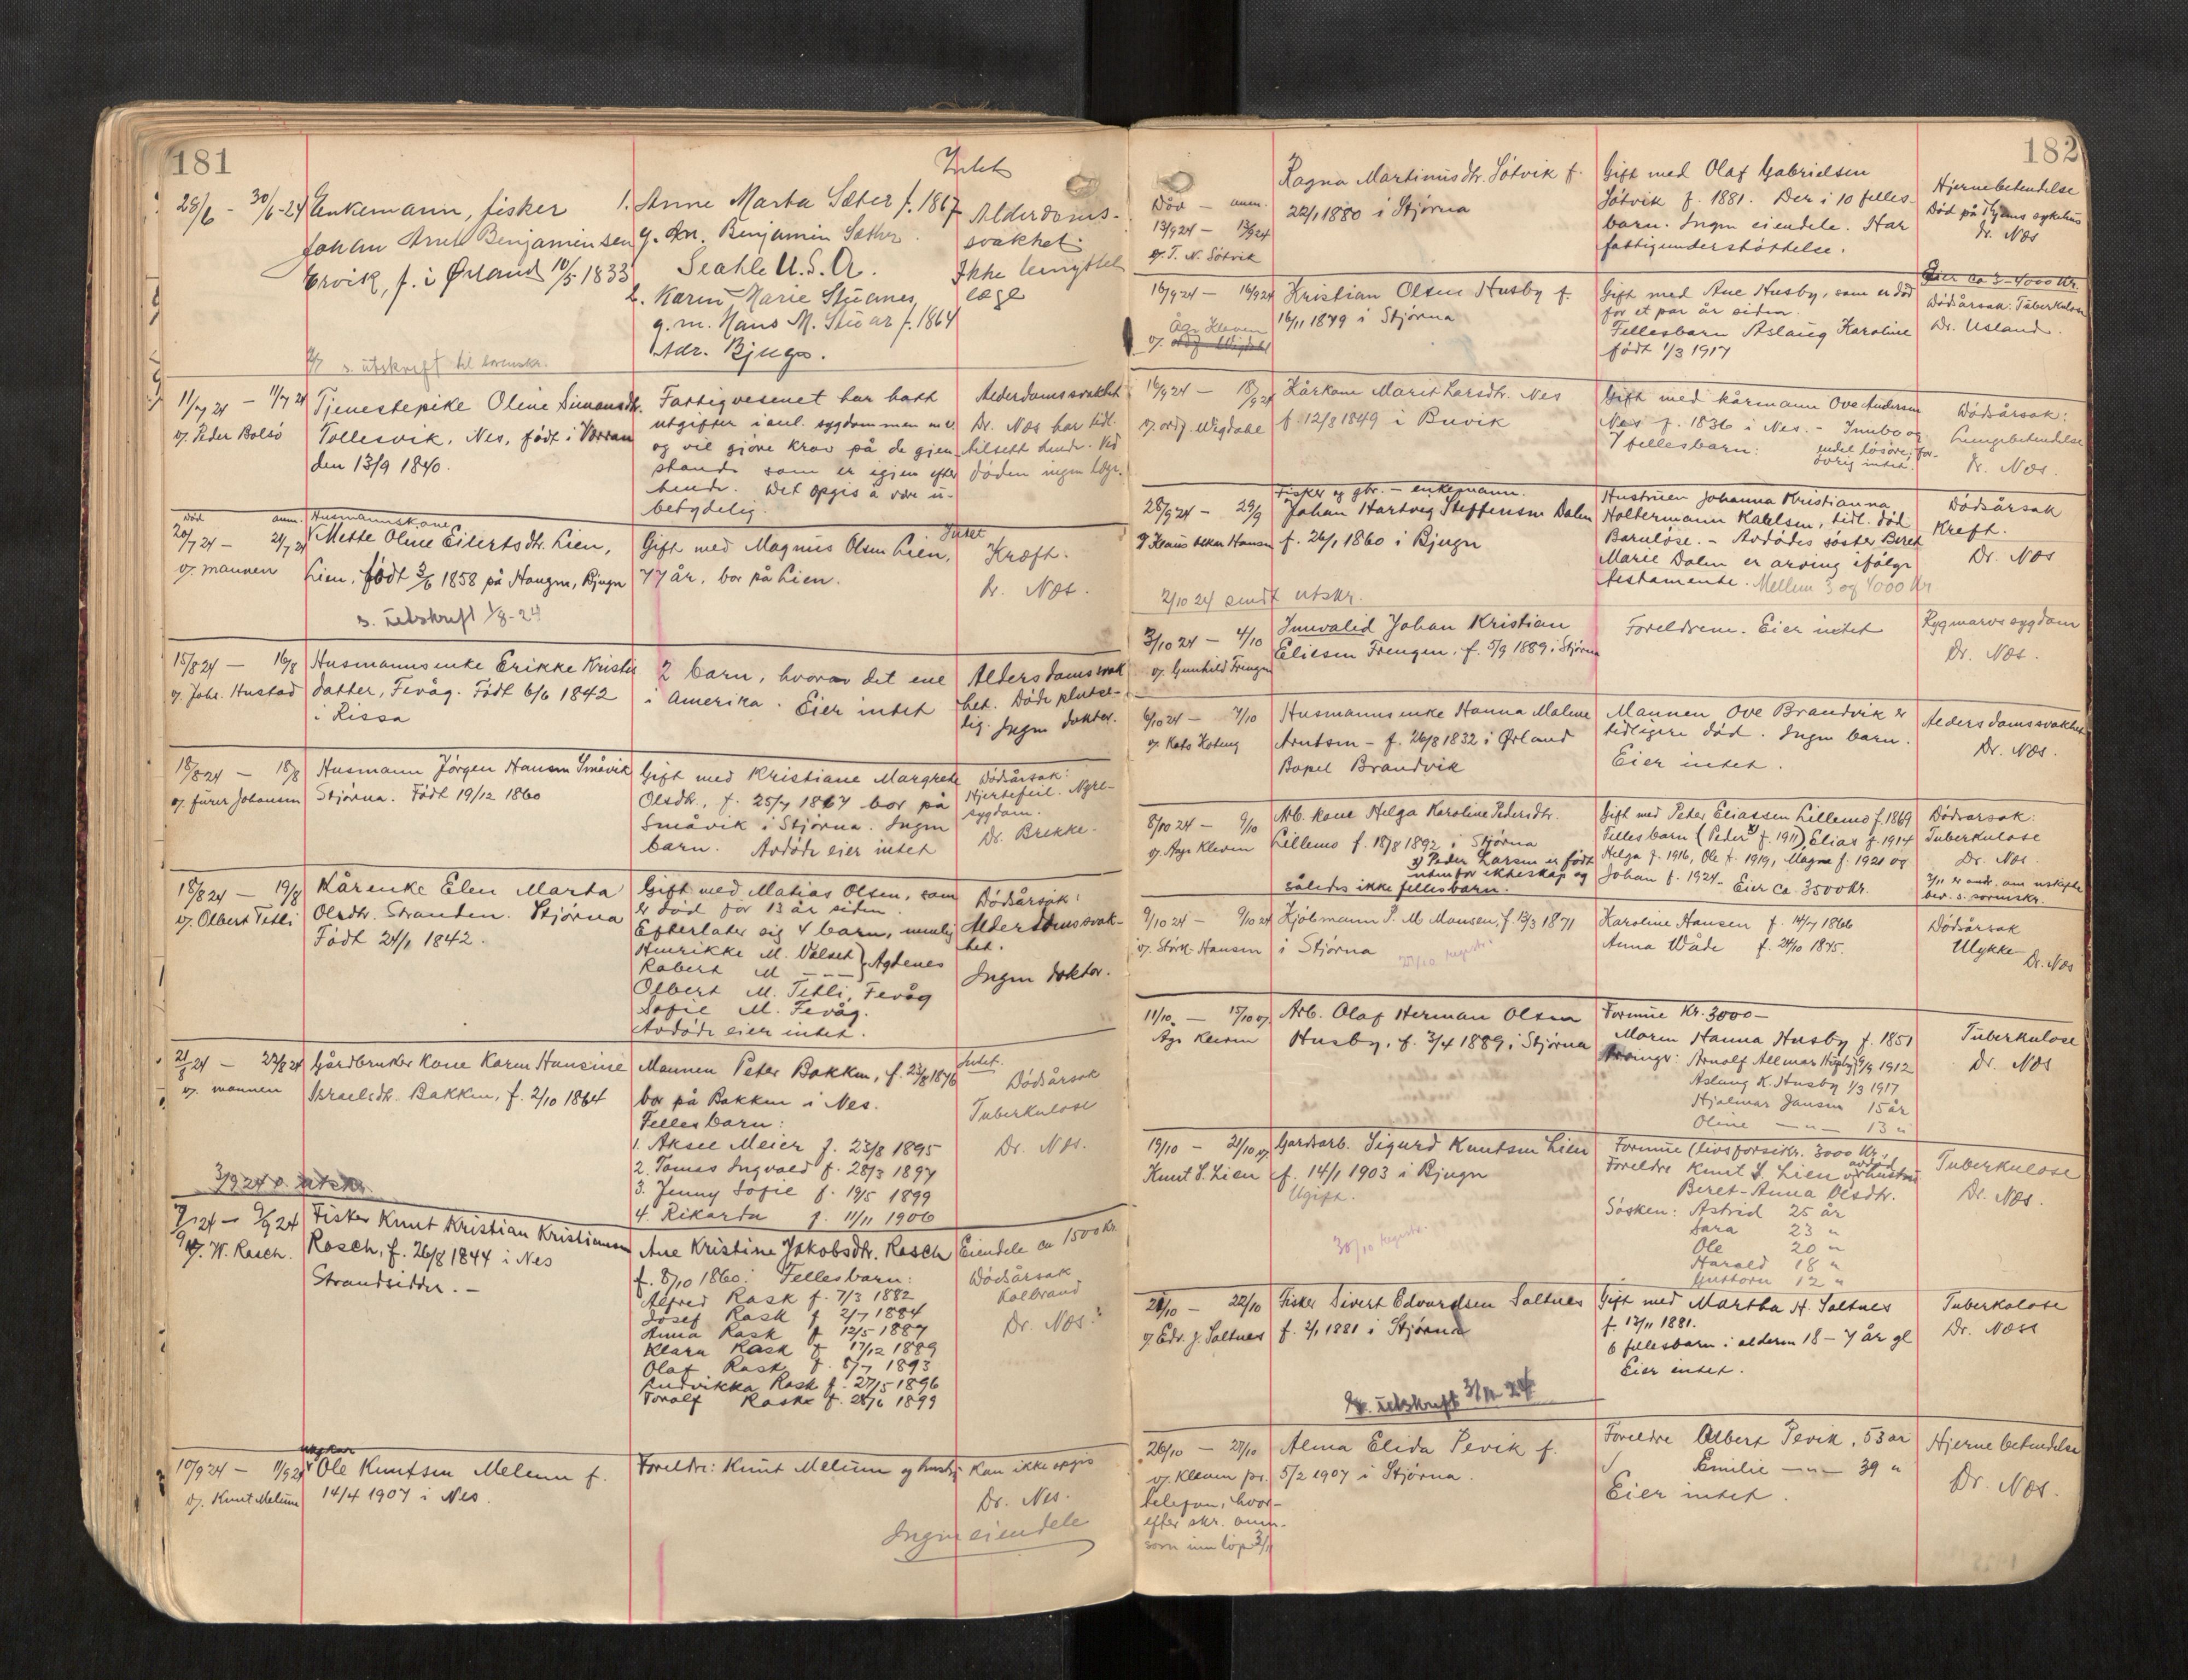 181
Intet
28/6 - 30/6-24
Enkemann, fisker
Johan Arnt Benjaminsen
Ervik, f. i Ørland 10/5 1833
1. Anne Marta Sæter f. 1867
g. m. Benjamin Sæther
Seatle U.S.A.
2. Karen Marie Stuenes
g.m. Hans M. f. 1864
Adr. Bjugn.
Alderdoms-
svakhet
Ikke benyttet
læge
s. utskrift til
11/7 24 - 11/7 24
v/ Peder Bolsø
Tjenestepike Oline Simonsdtr.
Tollesvik, Nes, født i
den 13/9 1840.
Fattigvesenet har hatt
utgifter i anl. sygdommen m.v.
og vil gjøre krav på de gjen-
stande som er igjen efter
hende. Det opgis å være u-
betydelig
Alderdomssvakhet
Dr. Næs har tidl.
tilsett hende. Ved
døden ingen læge.
Død anm.
20/7 24 - 21/7 24
v/ mannen
Husmannskone
Mette Oline Eilertsdtr. Lien,
Lien, født 3/6 1858 på Haugen, Bjugn
s. utskrift 1/8-24
Gift med Magnus Olsen Lien,
77 år, bor på Lien.
Intet
Kræft.
Dr. Næs.
15/8 24 - 16/8
v/ Johs. Hustad
Husmannsenke Erikke Krists
datter, Fevåg. Født 6/6 1842
i Rissa
2 barn, hvorav det ene
i Amerika. Eier intet
Aldersdomssvak
het. Døde plutse-
lig. Ingen doktor.
18/8 24 - 18/8
v/ furer Johansen
Husmann Jørgen Hansen Småvik
Stjørna. Født 19/12 1860
Gift med Kristiane Margrete
Olsdtr., f. 25/7 1867 bor på
Småvik i Stjørna. Ingen
barn. Avdøde eier intet
Dødsårsak:
Hjertefeil. Nyre-
sygdom.
Dr. Brekke.
18/8 24 - 19/8
v/ Olbert Tetli
Kårenke Elen Marta
Olsdtr. Stranden. Stjørna
Født 24/1 1842.
Gift med Matias Olsen, som
er død for 13 år siden.
Efterlater sig 4 barn, nemlig
Henrikke M. Valset) Agdenes
Robert M - - -
Olbert M. Tetli, Fevåg
Sofie M. Fevåg.
Avdøde eier intet.
Dødsårsak:
Alderdomssvak-
het.
Ingen doktor.
21/8 24 - 22/8 24
v/ mannen
Gårdbruker kone Karen Hansine
Israelsdtr. Bakken, f. 2/10 1864
3/9 24 s. utskr.
Mannen Peter Bakken, f. 23/8 1876
bor på Bakken i Nes.
Fellesbarn:
1. Aksel Meier f. 23/8 1895
2. Tomas Ingvald f. 28/3 1897
3. Jenny Sofie f. 19/5 1899
4. Rikarda f. 11/11 1906
Intet.
Dødsårsak
Tuberkulose
Dr. Næs.
7/9 24 - 9/9 24
v/ W. Rasch.
Fisker Knut Kristian Kristiansen
Rasch, f. 26/8 1844 i Nes
Strandsidder. -
Ane Kristine Jakobsdtr. Rasch
f. 8/10 1860. Fellesbarn:
Alfred Rask f. 7/3 1882
Josef Rask f 2/7 1884
Anna Rask f 12/5 1887
Klara Rask f 17/12 1889
Olaf Rask f. 8/7 1893
Ludvikka Rask f. 27/5 1896
Toralf Rask f. 28/6 1899
Eiendele ca 1500 kr.
Dødsårsak
Kolbrand
Dr. Næs.
10/9 24 - 11/9 24
v/ Knut Melum
Ungkar
Ole Knutsen Melum f.
14/4 1907 i Nes.
Foreldre: Knut Melum og hustru
Kan ikke opgis
Dr. Næs.
Ingen eiendele
182
Død - anm.
13/9 24 - 13/9 24
v/ T. N. Søtvik
Ragna Martinusdtr. Søtvik f.
22/1 1880 i Stjørna
Gift med Olaf Gabrielsen
Søtvik f. 1881. Der i 10 felles-
barn. Ingen eiendele. Har
fattigunderstøttelse.
Hjernebetendelse
Død på Thjems sykehus
Dr. Næs
16/9 24 - 16/9 24
Åge Kleven
v/ ordf. Wigdahl
Kristian Olsen Husby f.
16/11 1879 i Stjørna
Gift med Ane Husby, som er død
for et par år siden.
Fellesbarn Aslaug Karoline
født 1/3 1917
Eier ca 3-4000 kr.
Dødsårsak: Tuberkulose
Dr. Usland.
16/9 24 - 18/9 24
v/ ordf. Wigdahl
Kårkone Marit Larsdtr. Nes
f. 12/8 1849 i Buvik
Gift med kårmann Ove Andersen
Nes f. 1836 i Nes. - Innbo og
7 fellesbarn: endel løsøre, for-
øvrig intet.
Dødsårsak:
Lungebetendelse
Dr. Næs.
28/9 24 - 29/9
v/ Klaus Oskar Hansen
Fisker og gbr. - enkemann.
Johan Hartvig Steffensen Dalen
f. 26/1 1860 i Bjugn
2/10 24 sendt utskr.
Hustruen Johanna Kristianna
Holtermann Karlsen, tidl. død
Barnløse. - Avdødes søster Beret
Marie Dalen er arving ifølge
testamente. Mellem 3 og 4000 kr
Dødsårsak
Kreft.
Dr. Næs
3/10 24 - 4/10
v/ Gunhild Frengen
Innvalid Johan Kristian
Eliesen Frengen, f. 5/9 1889 i Stjørna
Foreldrene. Eier intet
Rygmarvssygdom
Dr. Næs.
6/10 24 - 7/10
v/ Kats Koteng
Husmannsenke Hanna Malene
Arntsen - f. 26/8 1832 i Ørland
Bopel Brandvik
Mannen Ove Brandvik er
tidligere død. Ingen barn.
Eier intet.
Aldersdomssvakhet
Dr. Næs.
8/10 24 - 9/10
v/ Åge Kleven
Arb. kone Helga Karoline Pedersdtr.
Lillemo f. 18/8 1892 i Stjørna
x) Peder Larsen er født
utenfor ekteskap og
således ikke fellesbarn.
Gift med Peter Eliassen Lillemo f. 1869
Fellesbarn (Peder x) f. 1911), Elias f. 1914
Helga f. 1916, Ole f. 1919, Magne f. 1921 og
Johan f. 1924 - Eier ca. 3500 kr.
Dødsårsak:
Tuberkulose
Dr. Næs.
9/10 24 - 9/10 24
v/ Størk. Hansen
Kjøbmann P. M Hansen, f. 13/3 1871
i Stjørna
Karoline Hansen f. 14/7 1866
Anna Wåde f. 24/10 1875.
Dødsårsak
Ulykke
Dr. Næs
11/10 - 15/10 v/
Åge Kleven
Arb. Olaf Herman Olsen
Husby, f. 3/4 1889 i Stjørna
Formue Kr. 3000 -
Moren Hanna Husby f. 1851
Arvinger: Arnolf Allmar Husby 9/9 1912
Aslaug K. Husby 1/3 1917
Hjalmar Jansen 15 år
Oline -"- 13 "
Tuberkulose
Dr. Næs
19/10 - 21/10 v/
Knut S. Lien
Gardsarb. Sigurd Knutsen Lien
f. 14/1 1903 i Bjugn
Ugift.
30/10 registr.
Formue (livsforsikr. 3000 kr.,
Foreldre Knut S. Lien og avdød hustru
Beret-Anna Olsdtr.
Søsken: Astrid 25 år
Sara 23 "
Ole 20 "
Harald 18 "
Guttorm 12 "
Tuberkulose
Dr. Næs.
21/10 - 22/10
v/ Edv. J. Saltnes
Fisker Sivert Edvardsen Saltnes
f. 2/1 1881 i Stjørna
s. utskrift 3/11 24
Gift med Martha H. Saltnes
f. 17/11 1881.
6 fellesbarn i alderen 18 - 7 år gl
Eier intet.
Tuberkulose
Dr. Næss
26/10 - 27/10
v/ Kleven pr.
telefon, hvor-
efter skr. anm.
som inn løp 3/11
Alma Elida Pevik f.
5/2 1907 i Stjørna.
Foreldre Albert Pevik, 53 år
Emilie -"- 39 "
Eier intet.
Hjernebetendelse
Dr. Næs.